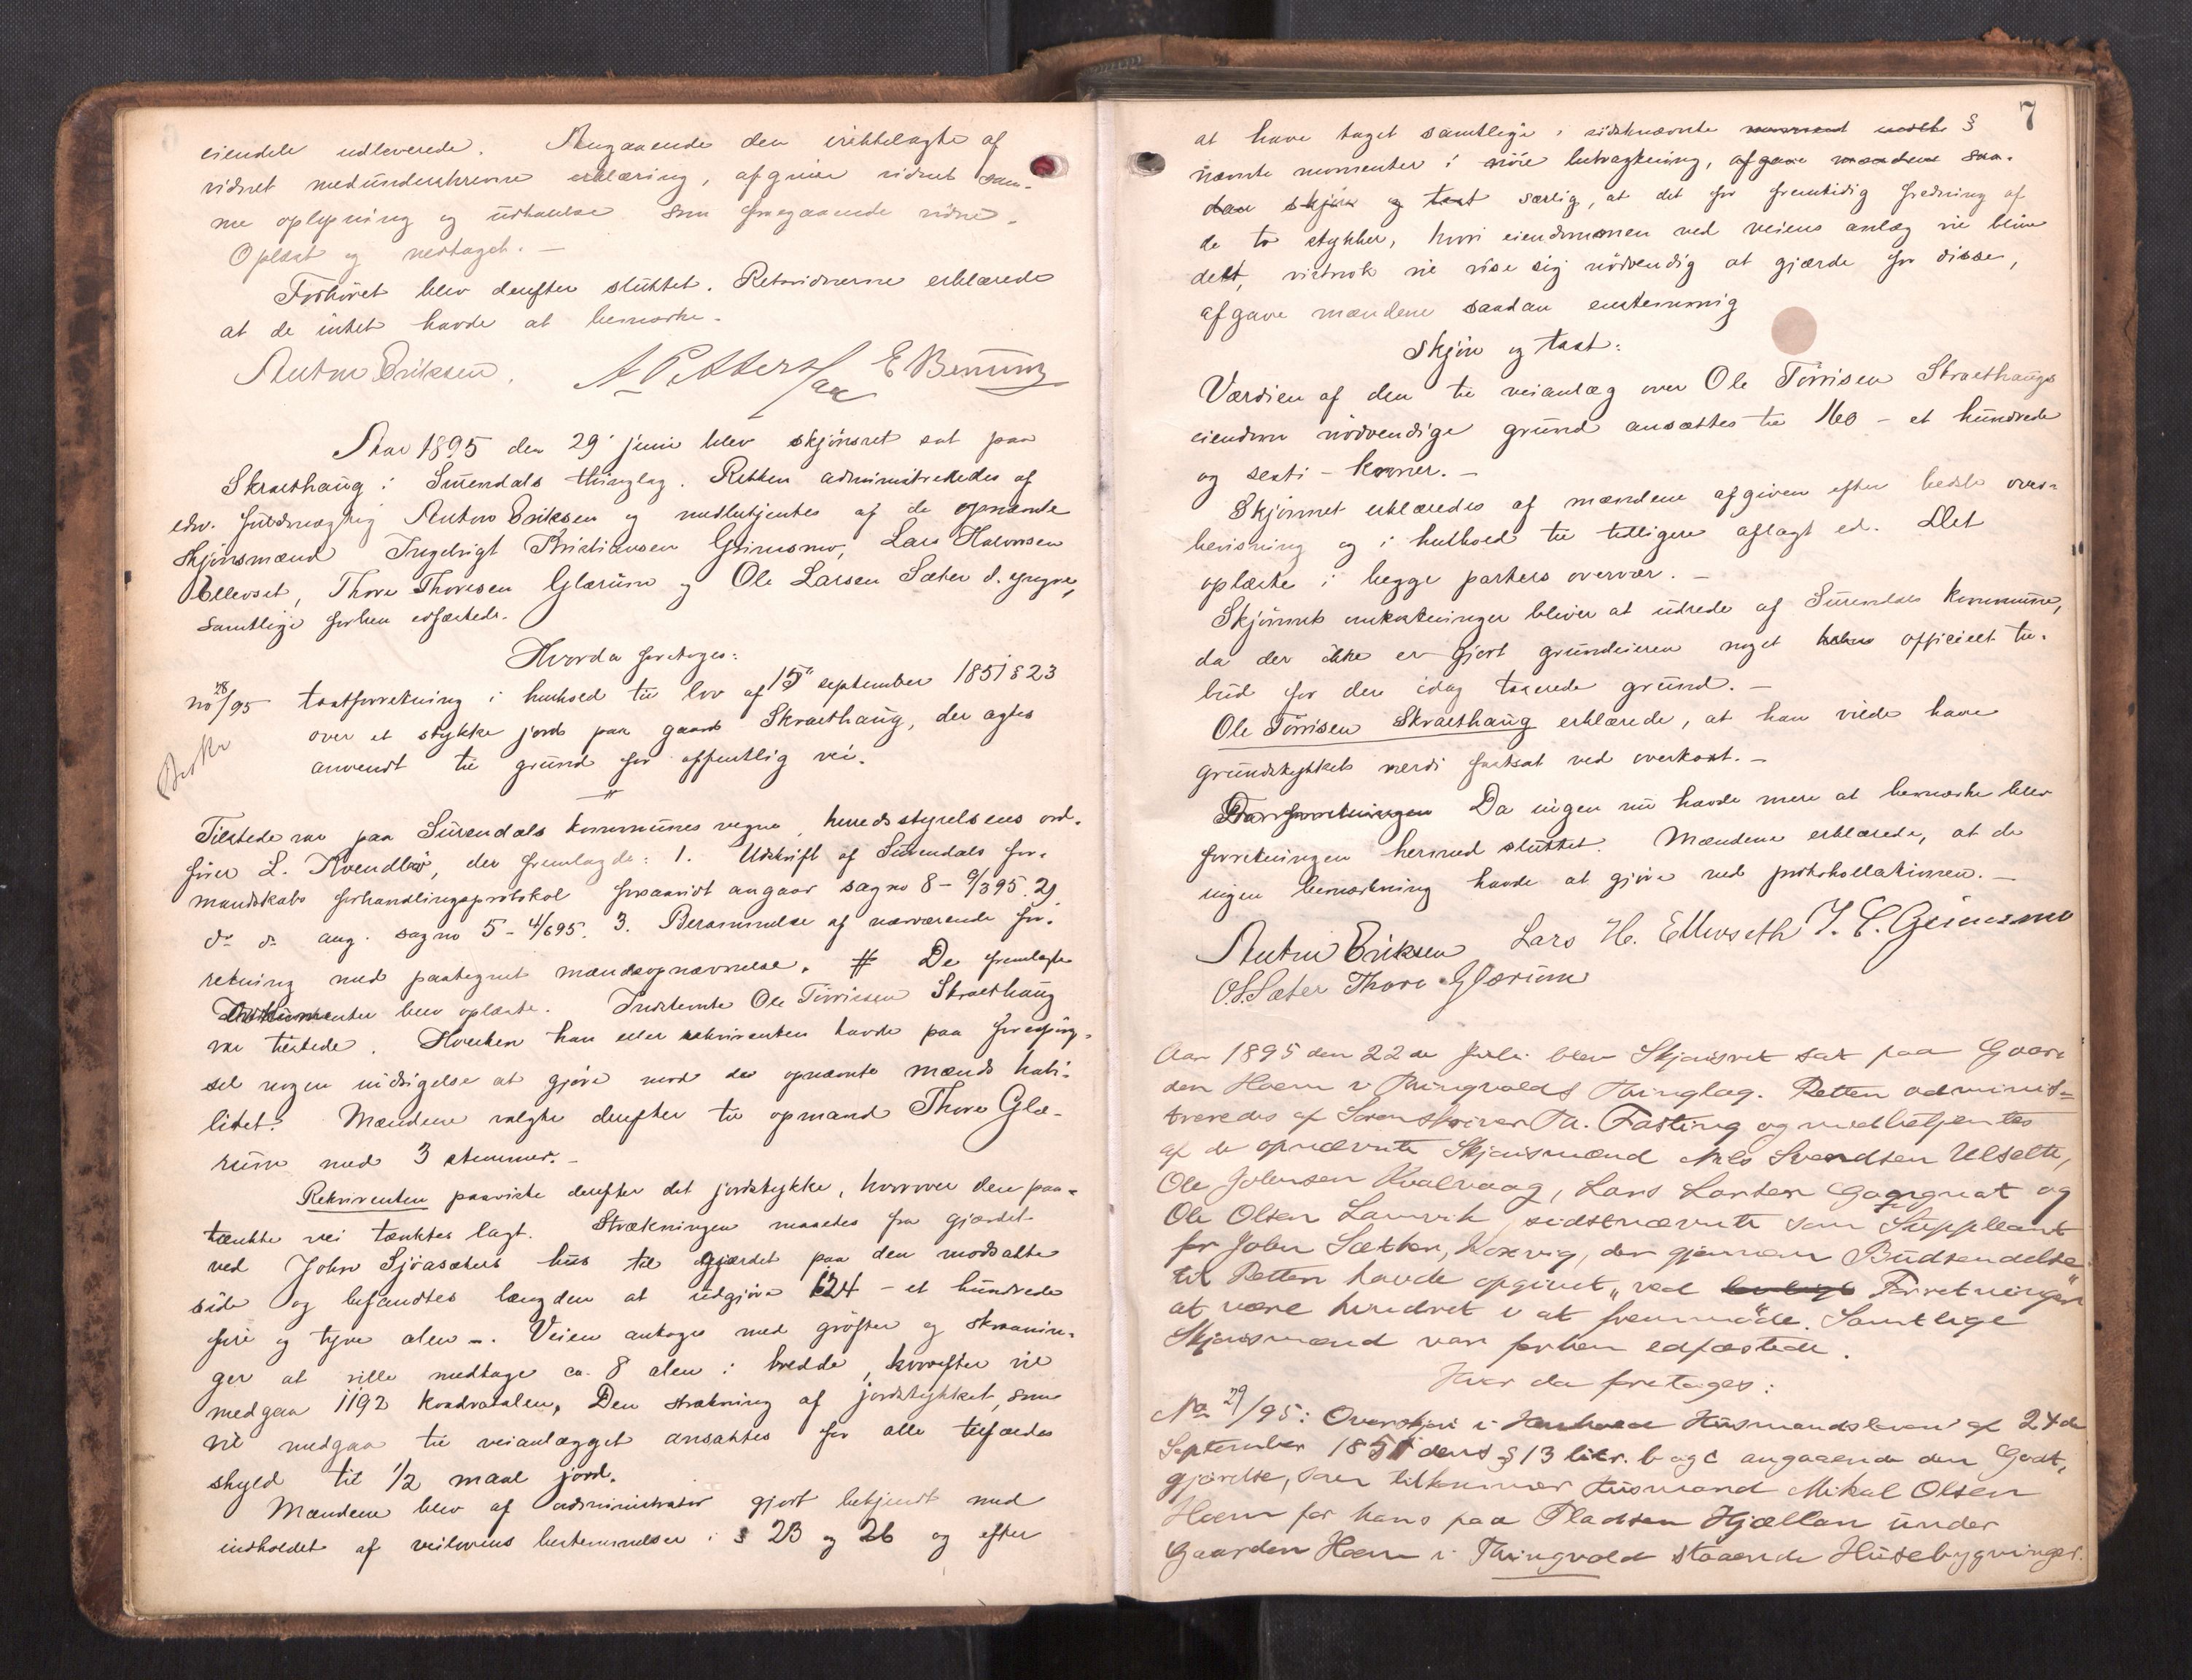 eiendele udleverede. Angaaende den irettelagte af
vidnet medunderskrevne erklæring, afgiver vidnet sam-
me oplysning og udtalelse som foregaaende vidne.
Oplæst og vedtaget. —
Forhøret blev derefter sluttet. Retsvidnerne erklærede
at de intet havde at bemærke.
Anton Eriksen. A Pettersen E Bruun
Aar 1895 den 29 juni blev skjønsret sat paa
Skralthaug i Surendals thinglag. Retten administreredes af
edsv. fuldmægtig Anton Eriksen og medbetjentes af de opnævnte
skjønsmænd Ingebrigt Kristiansen Grimsmo, Lars Halvorsen
Ellevset, Thore Thoresen Glærum og Ole Larsen Sæter d. yngre,
samtlige forhen edfæstede.
Hvorda foretoges:
no 28/95 taxtforretning i henhold til lov af 15 september 1851 § 23
over et stykke jord paa gaard Skralthaug, der agtes
anvendt til grund for offentlig vei.
Tilstede var paa Surendals kommunes vegne, herredsstyrelsens ord-
fører L. Kvendbø, der fremlagde: 1. Udskrift af Surendals for-
mandskabs forhandlingsprotokol forsaavidt angaar sag no 8 - 9/3 95. 2)
do do ang. sag no 5 - 4/6 95. 3. Berammelse af nærværende for-
retning med paategnet mændsopnævnelse. # De fremlagte
Dokumenter blev oplæste. Indstevnte Ole Tørrisen Skralthaug
var tilstede. Hverken han eller rekvirenten havde paa forespørg-
sel nogen indsigelse at gjøre mod de opnævnte mænds habi-
litet. Mændene valgte derefter til opmand Thore Glæ-
rum med 3 stemmer. —
Rekvirenten paaviste derefter det jordstykke, hvorover den paa-
tænkte vei tænktes lagt. Strækningen maaltes fra gjærdet
ved John Sjøasæters hus til gjærdet paa den modsatte
side og befandtes længden at udgjøre 124 - et hundrede
fire og tyve alen -. Veien antoges med grøfter og skraanin-
ger at ville medtage ca. 8 alen i bredde, hvorefter vil
medgaa 1192 kvadratalen. Den strækning af jordstykket, som
vil medgaa til veianlægget ansattes for alle tilfældes
skyld til 1/2 maal jord.
Mændene blev af administrator gjort bekjendt med
indholdet af veilovens bestemmelser i § 23 og 26 og efter
7
at have taget samtlige i sidstnævnte §
nævnte momenter i nøie betragtning, afgave mændene saa-
dan skjøn og taxt særlig, at det for fremtidig fredning af
de to stykker, hvori eiendommen ved veiens anlæg vil blive
delt, vistnok vil vise sig nødvendig at gjærde for disse,
afgave mændene saadan enstemmig
skjøn og taxt:
Værdien af den til veianlæg over Ole Tørrisen Skralthaugs
eiendom nødvendige grund ansættes til 160 - et hundrede
og sexti - kroner. —
Skjønnet erklæredes af mændene afgiven efter bedste over-
bevisning og i henhold til tidligere aflagt ed. Det
oplæste i begge parters overvær. —
Skjønnets omkostninger bliver at udrede af Surendals kommune,
da der ikke er gjort grundeieren noget officielt til-
bud for den idag taxerede grund. —
Ole Tørrisen Skralthaug erklærede, at han vilde have
grundstykkets værdi fastsat ved overtaxt. —
Da ingen nu havde mere at bemærke blev
forretningen hermed sluttet. Mændene erklærede, at de
ingen bemærkning havde at gjøre ved protokollationen. —
Anton Eriksen Lars H. Ellevseth I. C. Grimsmo
O.L. Sæter Thore Glærum
Aar 1895 den 22de Juli blev Skjønsret sat paa Gaar-
den Hoem i Thingvolds Thinglag. Retten adminis-
treredes af Sorenskriver Th. Fasting og medbetjentes
af de opnævnte Skjønsmænd Nils Svendsen Ulset,
Ole Johnsen Kvalvaag, Lars Larsen og
Ole Olsen Lamvik, sidstnævnte som Suppleant
for John Sætter, Koxvig, der gjennem Budsendelse
til Retten havde opgivet, ved Forretningen
at være hindret i at fremmøde. Samtlige
Skjønsmænd var forhen edfæstede.
Hvor da foretoges:
No 29/95: Overskjøn i Husmandsloven af 24de
September 1851 dens § 13 litr. b og c angaaende den Godt-
gjørelse, som tilkommer Husmand Mikal Olsen
Hoem for hans paa Pladsen Hjællan under
Gaarden Hoem i Thingvold staaende Husebygninger.